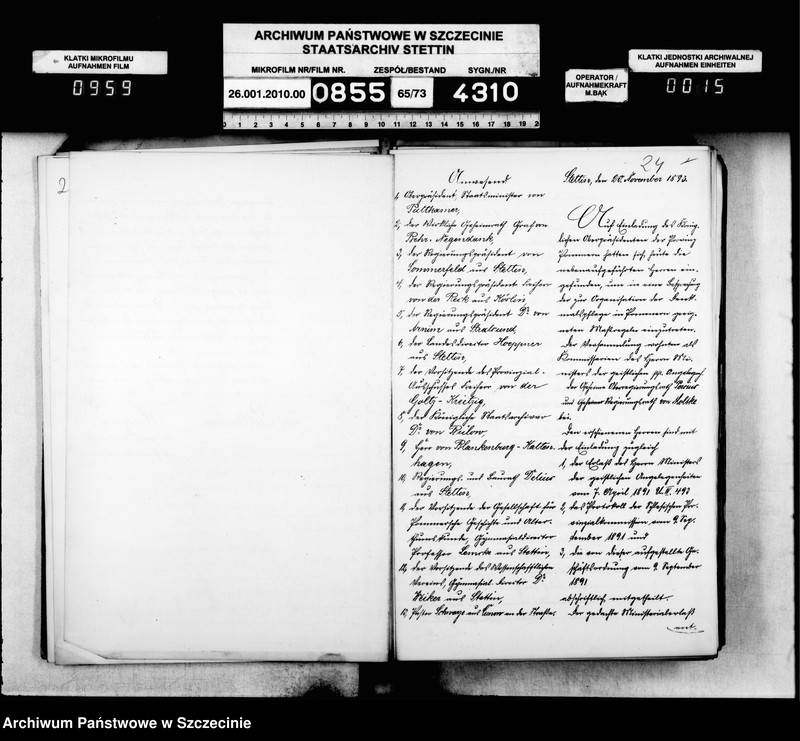 ARCHIWUM PAŃSTWOWE W SZCZECINIE
STAATSARCHIV STETTIN
MIKROFILM NR/FILM NR. ZESPÓŁ/BESTAND SYGN./NR
26.001.2010.00 0855 65/73 4310
KLATKI MIKROFILMU
AUFNAHMEN FILM
0959
OPERATOR /
AUFNAHMEKRAFT
M.BĄK
KLATKI JEDNOSTKI ARCHIWALNEJ
AUFNAHMEN EINHEITEN
0015
0 1 2 3 4 5 6 7 8 9 10 11 12 13 14 15 16 17 18 19 20
2
24
Anwesend
1, Oberpräsident, Staatsminister von
Puttkamer,
2, der Wirkliche Geheimrath Graf von
Behr-Negendank,
3, der Regierungspräsident von
Sommerfeld aus Stettin,
4, der Regierungspräsident Freiherr
von der Reck aus Köslin,
5, der Regierungspräsident Dr. von
Arnim aus Stralsund,
6, der Landesdirector Hoeppner
aus Stettin,
7, der Vorsitzende des Provinzial-
Ausschusses Freiherr von der
Goltz-Kreitzig,
8, der Königliche Staatsarchivar
Dr. von Bülow,
9, Herr von Blanckenburg-Katten-
hagen,
10, Regierungs- und Baurath Delius
aus Stettin,
11, der Vorsitzende der Gesellschaft für
Pommersche Geschichte und Alter-
thumskunde, Gymnasialdirector
Professor Lemcke aus Stettin,
12, der Vorsitzende des Wissenschaftlichen
Vereins, Gymnasial-Director Dr.
Weiker aus Stettin,
13, Pastor aus an der
Stettin, den 20. November 1893.
Auf Einladung des König-
lichen Oberpräsidenten der Provinz
Pommern hatten sich heute die
nebenaufgeführten Herren ein-
gefunden, um in eine Besprechung
der zur Organisation der Denk-
malspflege in Pommern geeig-
neten Maßregeln einzutreten.
Der Versammlung wohnten als
Kommissarien des Herrn Mi-
nisters der geistlichen pp. Angelegenh.
der Geheime Oberregierungsrath Persius
und Geheime Regierungsrath von Moltke
bei.
Den erschienenen Herren sind mit
der Einladung zugleich
1, der Erlaß des Herrn Ministers
der geistlichen Angelegenheiten
vom 7. April 1891 493
2, das Protokoll der Schlesischen Pro-
vinzialkommission vom 9. Sep-
tember 1891 und
3, die von dieser aufgestellte Ge-
schäftsordnung vom 9. September
1891
abschriftlich mitgetheilt.
Der gedachte Ministerialerlaß
Archiwum Państwowe w Szczecinie